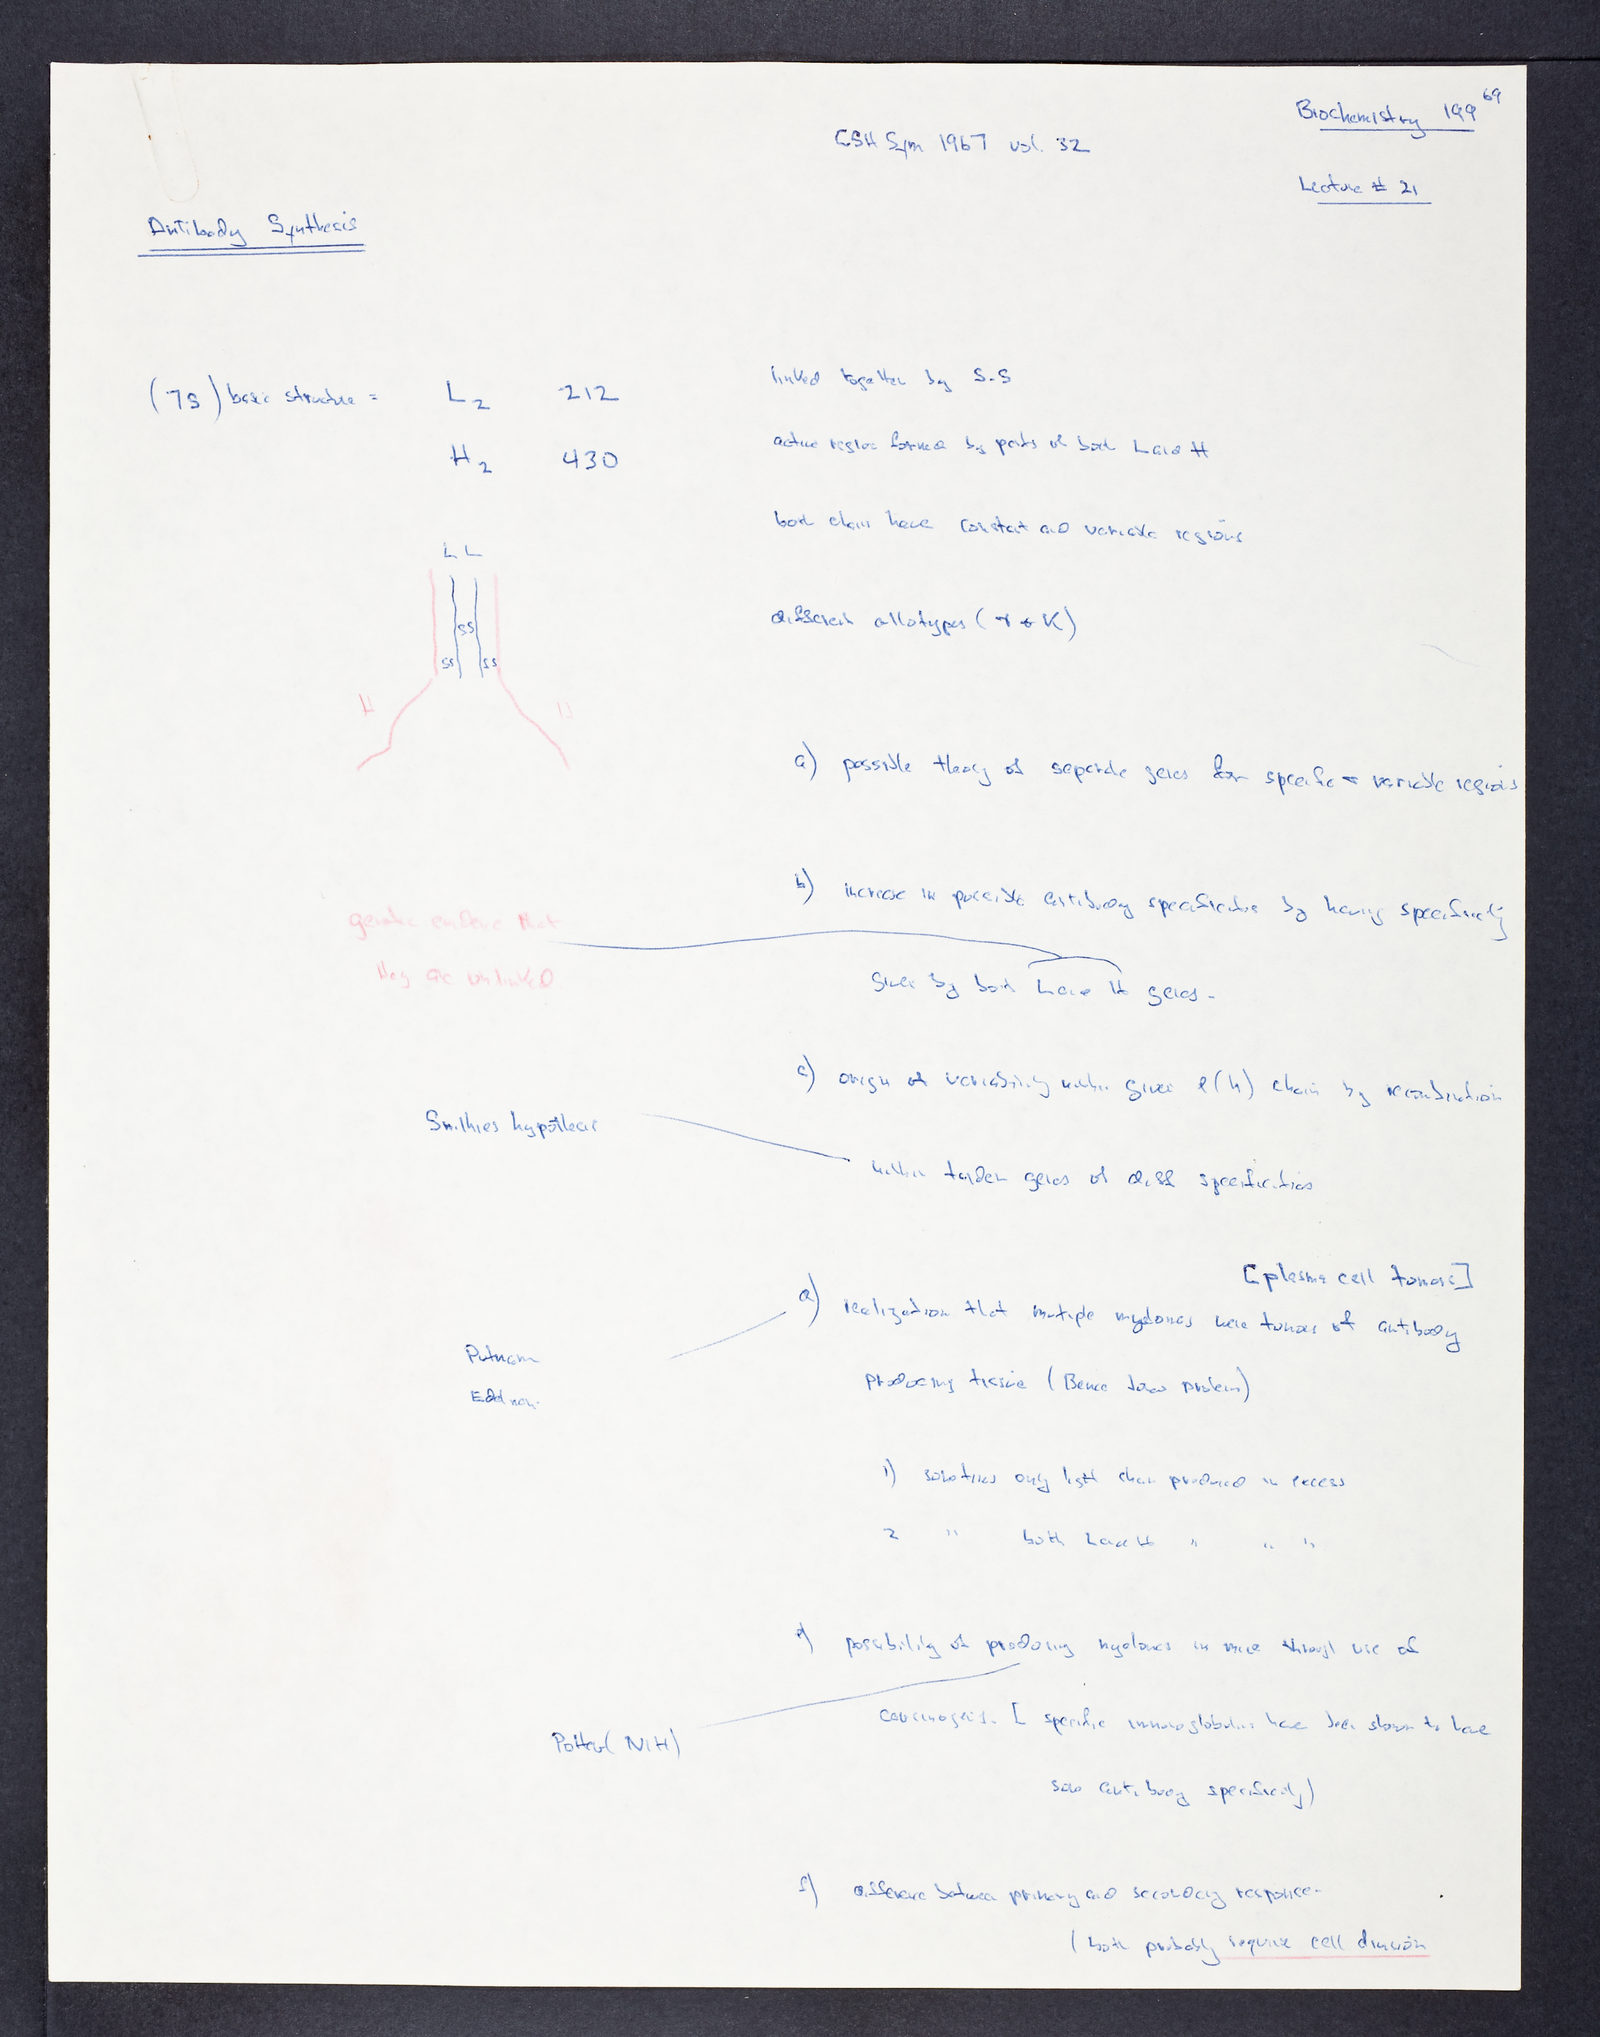 Biochemistry 199 69
CSH Sym 1967 vol. 32
Lecture # 21
Antibody Synthesis
(7S) basic structure = L2 212
H2 430
linked together by S-S
active region formed by parts of both L and H
both chain have constant and variable regions
L L
SS
SS SS
H H
different allotypes ( & K)
a) possible theory of separate genes for specific & variable regions
b) increase in possible antibody specificities by having specificity
given by both L and H genes.
genetic evidence that
they are unlinked
c) origin of variability within given l(h) chain by recombination
within tandem genes of diff specificities
Smithies hypothesis
[plasma cell tumors]
d) realization that multiple myelomas were tumors of antibody
producing tissue (Bence Jones protein)
Putnam
Edelman
1) sometimes only light chain produced in excess
2 " both L and H " " "
e) possibility of producing myelomas in mice through use of
carcinogens. [ specific immunoglobulins have been shown to have
some antibody specificity)
Potter (NIH)
f) difference between primary and secondary response.
(both probably require cell division